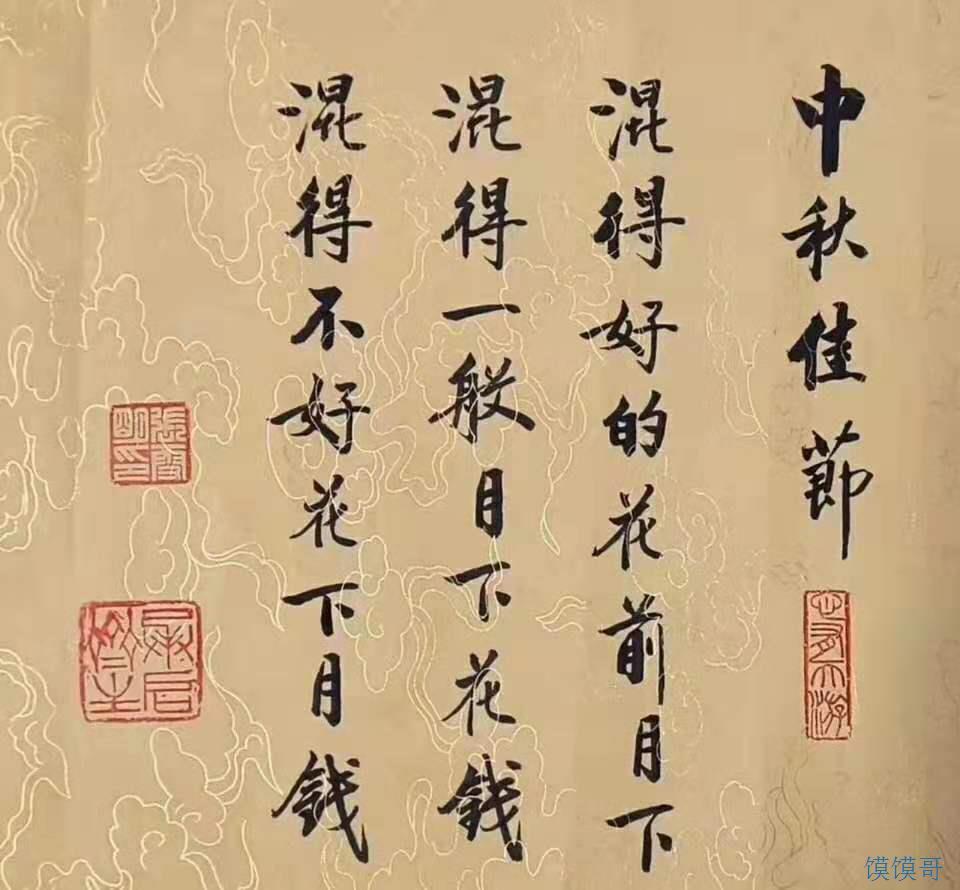 中秋佳節
混得好的花前月下
混得一般月下花钱
混得不好花下月钱
馍馍哥